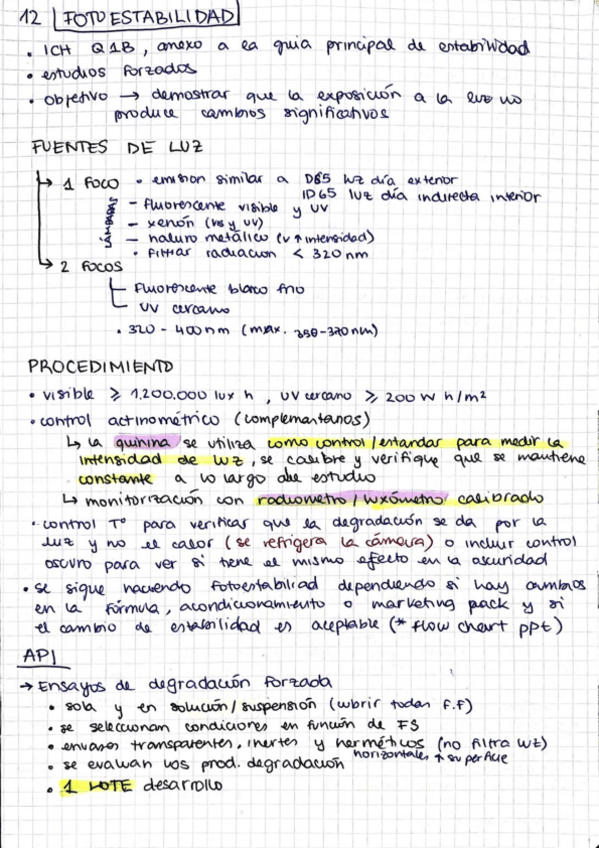 12 FOTOESTABILIDAD
• ICH Q1B, anexo a la guia principal de estabilidad
• estudios forzados
• objetivo → demostrar que la exposición a la luz no
produce cambios significativos
FUENTES DE LUZ
↳ 1 FOCO • emision similar a D65 luz día exterior
ID65 luz día indirecta interior
LÁMPARAS
– fluorescente visible y UV
– xenón (vis y UV)
– haluro metálico (v ↑ intensidad)
• Filtrar radiacion < 320 nm
↳ 2 FOCOS
Fluorescente blanco frio
UV cercano
• 320 - 400 nm (max. 350-370 nm)
PROCEDIMIENTO
• visible ⩾ 1.200.000 lux h, UV cercano ⩾ 200 W h/m²
• control actinométrico (complementarios)
↳ la quinina se utiliza como control/estandar para medir la
intensidad de luz, se calibre y verifique que se mantiene
constante a lo largo del estudio
↳ monitorización con radiometro/luxómetro calibrado
• control Tº para verificar que la degradación se da por la
luz y no el calor (se refrigera la cámara) o incluir control
oscuro para ver si tiene el mismo efecto en la oscuridad
• se sigue haciendo fotoestabiliad dependiendo si hay cambios
en la fórmula, acondicionamiento o marketing pack y si
el cambio de estabilidad es aceptable (* flow chart ppt)
API
→ Ensayos de degradación forzada
• sola y en solución/suspensión (cubrir todas f.f)
• se seleccionan condiciones en función de FS
• envases transparentes, inertes y herméticos (no filtra luz)
horizontales ↑ superficie
• se evaluan los prod. degradación
• 1 LOTE desarrollo